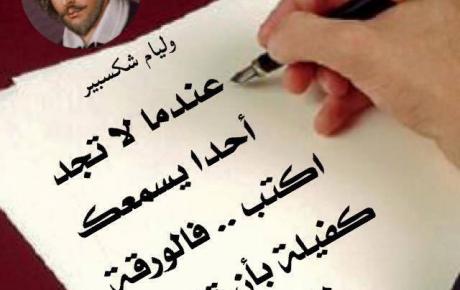 وليام شكسبير
عندما لا تجد
أحدا يسمعك
اكتب .. فالورقة
كفيلة بأن